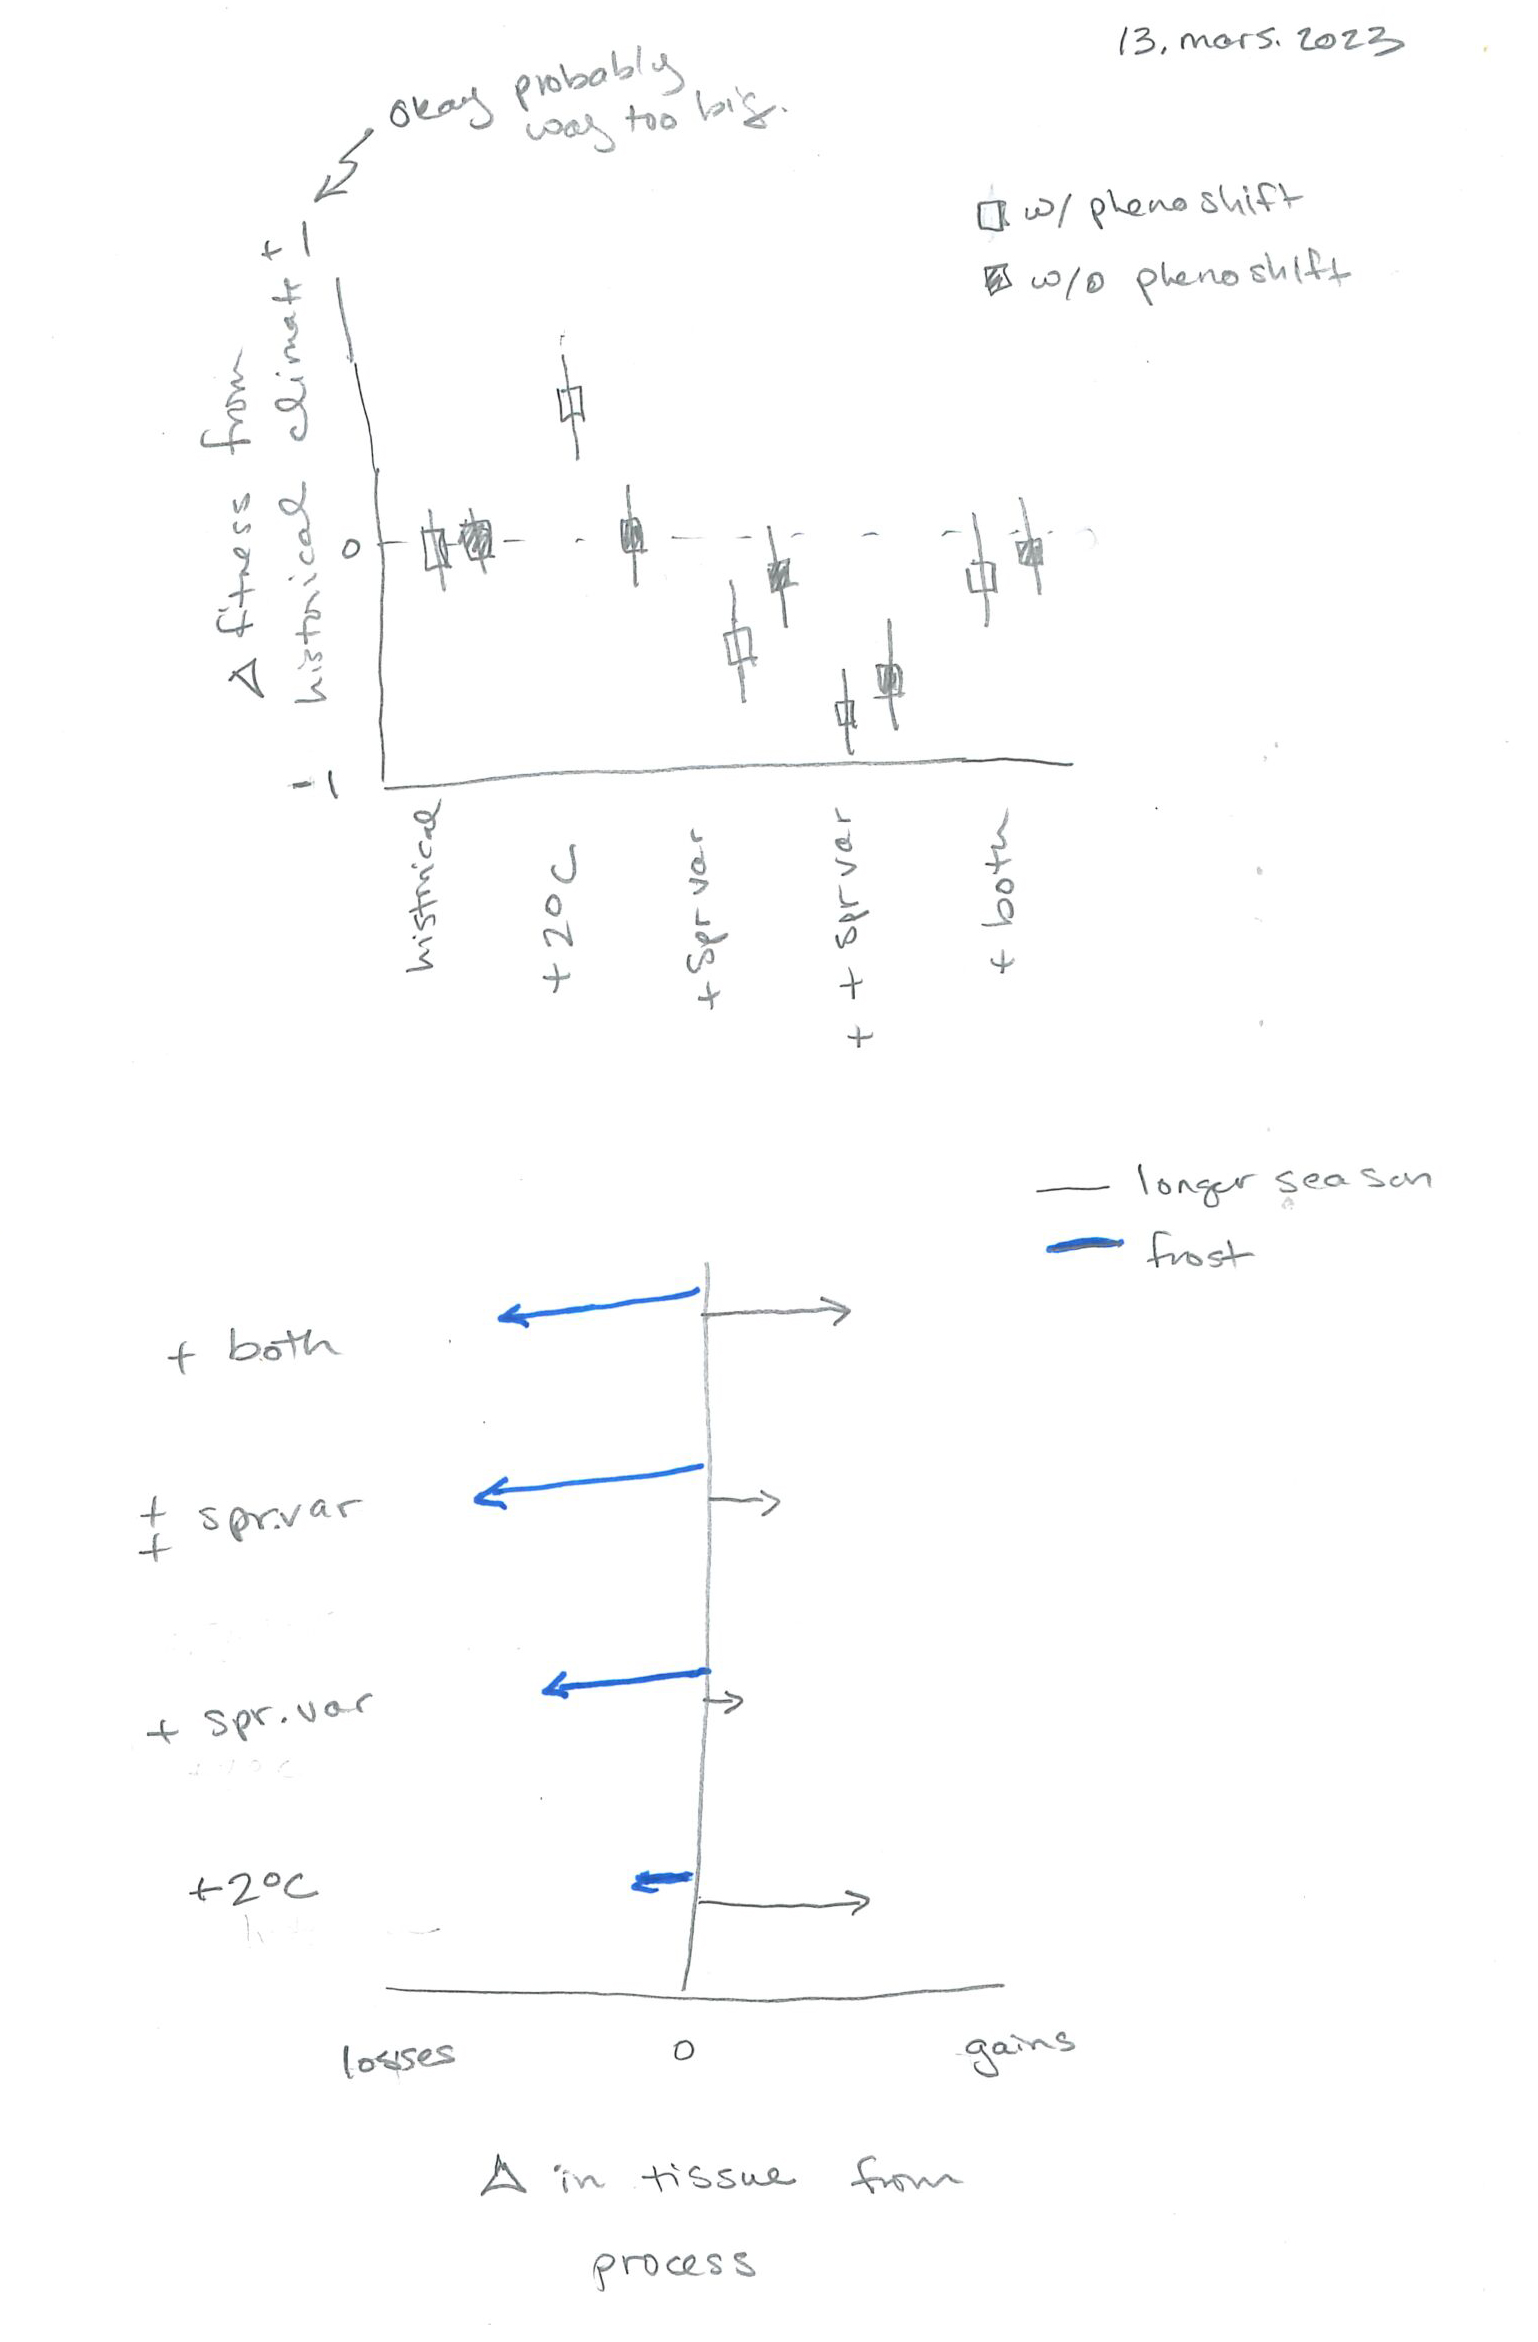 13. mars. 2023
okay probably
way too big.
w/ phenoshift
w/o phenoshift
+1
0
-1
Δ fitness from
historical climate
historical
+2°C
+ spr var
+ + spr var
+ both
longer season
frost
+ both
+ + spr.var
+ spr.var
+2°C
losses 0 gains
Δ in tissue from
process